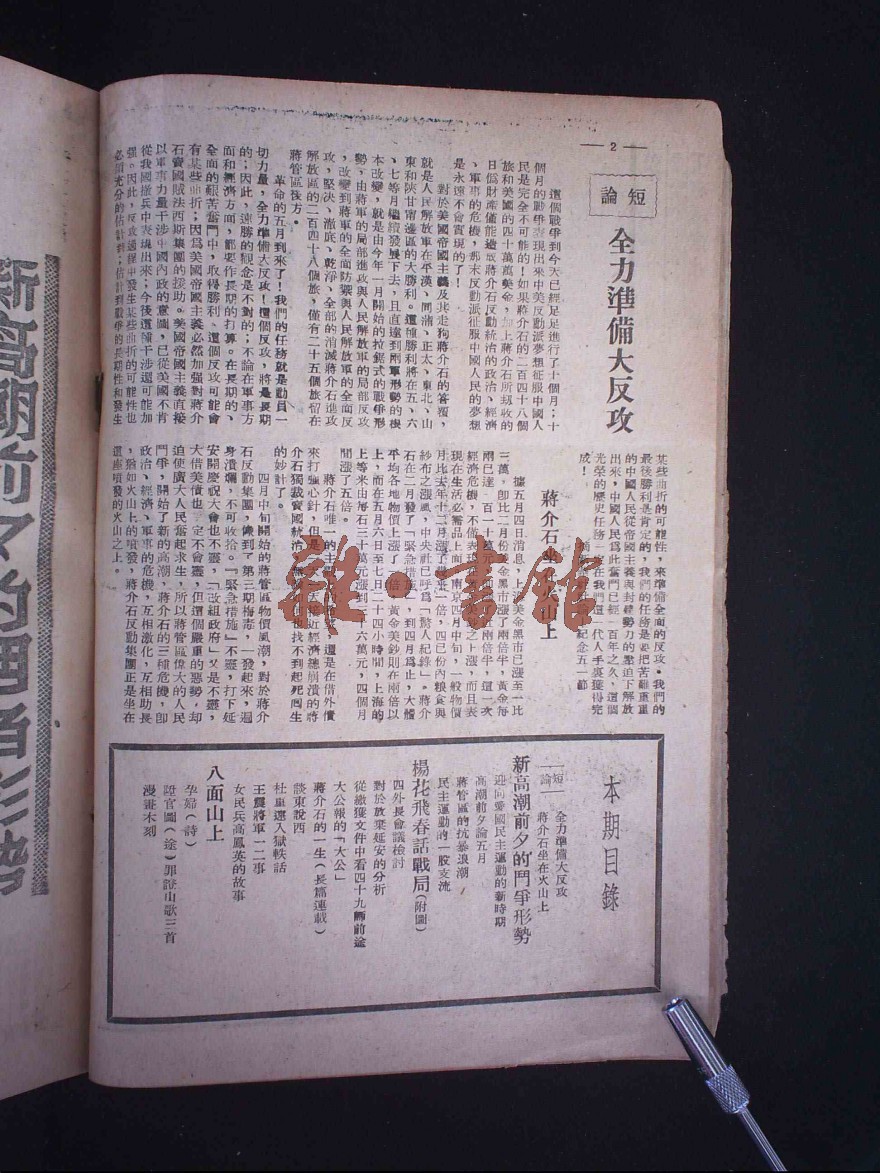 — 2 —
短論
全力準備大反攻
這個戰爭到今天已經足足進行了十個月；十
個月的戰爭表現出來中美反動派夢想征服中國人
民是完全不可能的！如果蔣介石的二百四十八個
旅和美國的四十萬萬美金，加上蔣介石所刼收的
日僞財產僅能造成蔣介石反動統治的政治、經濟
、軍事的危機，那末反動派征服中國人民的夢想
是永遠不會實現的了！
對於美國帝國主義及其走狗蔣介石的答覆，
就是人民解放軍在平漢、同蒲、正太、東北、山
東和陝甘甯邊區的大勝利。這種勝利將在五、六
、七等月繼續發展下去，且直達到兩軍形勢的根
本改變，就是由今年一月開始的拉鋸式的戰爭形
勢，由蔣軍的局部進攻與人民解放軍的局部反攻
，改變到蔣軍的全面防禦與人民解放軍的全面反
攻，堅决、澈底、乾淨、全部的消滅蔣介石進攻
解放區的二百四十八個旅，僅有二十五個旅留在
蔣管區後方。
革命的五月到來了！我們的任務就是動員一
切力量，全力準備大反攻！這個反攻，將是長期
的；因此，速勝的觀念是不對的；不論在軍事方
面和經濟方面，都要作長期的打算。在長期的、
全面的艱苦奮鬥中，取得勝利、這個反攻可能會
有某些曲折；因爲美國帝國主義必然加强對蔣介
石賣國賊法西斯集團的援助。美國帝國主義直接
以軍事力量干涉中國內政的意圖，已從美國不肯
從我國撤兵中表現出來；今後這種干涉還可能加
强。因此，反攻過程中發生某些曲折的可能性也
必須充分的估計到；估計到戰爭的長期性和發生
某些曲折的可能性，來準備全面的反攻。我們的
最後勝利是肯定的。我們的任務是要把苦難重重
的中國人民從帝國主義與封建勢力的壓迫下解放
出來，中國人民爲此奮鬥已經一百年之久，這個
光榮的歷史任務一定在我們這一代人手裏獲得完
成！
紀念五一節
蔣介石坐在火山上
據五月四日消息，上海美金黑市已漲至一比
三萬，卽比二月份美金黑市漲了兩倍半，黃金每
兩已達一百一十萬元，
經濟危機，不僅表現
現在生活必需品上面，南京四月中旬，一般物價
月比去年十二月漲了
紗布之漲風，中央社已呼爲「驚人紀錄」。蔣介
石在二月發了「緊急措施」，到四月爲止，大體
平均各地物價上漲了一倍，黃金美鈔則在兩倍以
上，而在五月六日至七日二十四小時間，上海的
上等米由每石三十萬元漲到三十六萬元，四個月
間漲了五倍。
蔣介石唯一的主
來打强心針，但是
介石獨裁賣國統治
的妙計了。
四月中旬開始的蔣管區物價風潮，對於蔣介
石反動集團，像到了第三期梅毒，一發起來，週
身潰爛，不可收拾。「緊急措施」不靈，打下延
安開慶祝大會也不靈，「改組政府」又是不靈，
大借美債也一定不會靈，但這個嚴重的惡勢，却
迫使廣大人民奮起求生，所以蔣管區偉大的人民
鬥爭，開始了新的高潮。蔣介石的三種危機，卽
政治、經濟、軍事的危機，互相激化，互相助長
，猶如火山上的噴發，蔣介石反動集團正是坐在
這座噴發的火山之上。
本期目錄
短論
全力準備大反攻
蔣介石坐在火山上
新高潮前夕的鬥爭形勢
迎向愛國民主運動的新時期
高潮前夕論五月
蔣管區的抗暴浪潮
民主運動的一股支流
楊花飛春話戰局(附圖)
四外長會議檢討
對於放棄延安的分析
從繳獲文件中看四十九師前途
大公報的「大公」
蔣介石的一生(長篇連載)
談東說西
杜重遠入獄軼話
王震將軍一二事
女民兵高鳳英的故事
八面山上
孕婦(詩)
陞官圖(途)罪證山歌三首
漫畫木刻
新高潮前夕的鬥爭形勢
雜·書館